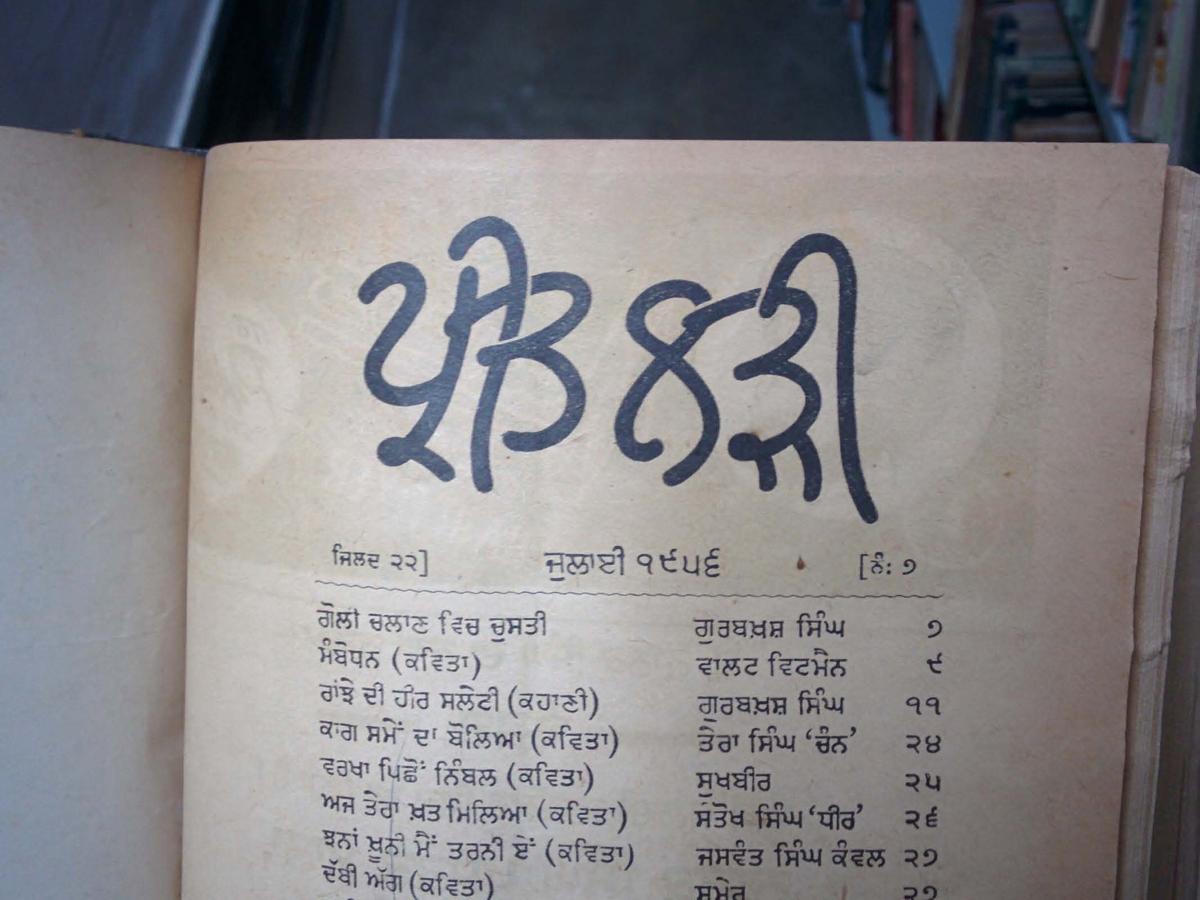 ਪ੍ਰੀਤ ਲੜੀ
ਜਿਲਦ ੨੨] ਜੁਲਾਈ ੧੯੫੬ [ਨੰ: ੭
ਗੋਲੀ ਚਲਾਣ ਵਿਚ ਚੁਸਤੀ ਗੁਰਬਖ਼ਸ਼ ਸਿੰਘ ੭
ਸੰਬੋਧਨ (ਕਵਿਤਾ) ਵਾਲਟ ਵਿਟਮੈਨ ੯
ਰਾਂਝੇ ਦੀ ਹੀਰ ਸਲੇਟੀ (ਕਹਾਣੀ) ਗੁਰਬਖ਼ਸ਼ ਸਿੰਘ ੧੧
ਕਾਗ ਸਮੇਂ ਦਾ ਬੋਲਿਆ (ਕਵਿਤਾ) ਤੇਰਾ ਸਿੰਘ ‘ਚੰਨ’ ੨੪
ਵਰਖਾ ਪਿਛੋਂ ਨਿੰਬਲ (ਕਵਿਤਾ) ਸੁਖਬੀਰ ੨੫
ਅਜ ਤੇਰਾ ਖ਼ਤ ਮਿਲਿਆ (ਕਵਿਤਾ) ਸੰਤੋਖ ਸਿੰਘ ‘ਧੀਰ’ ੨੬
ਝਨਾਂ ਖ਼ੂਨੀ ਮੈਂ ਤਰਨੀ ਏਂ (ਕਵਿਤਾ) ਜਸਵੰਤ ਸਿੰਘ ਕੰਵਲ ੨੭
ਦੱਬੀ ਅੱਗ (ਕਵਿਤਾ) ਸੁਮੇਰ ੨੭